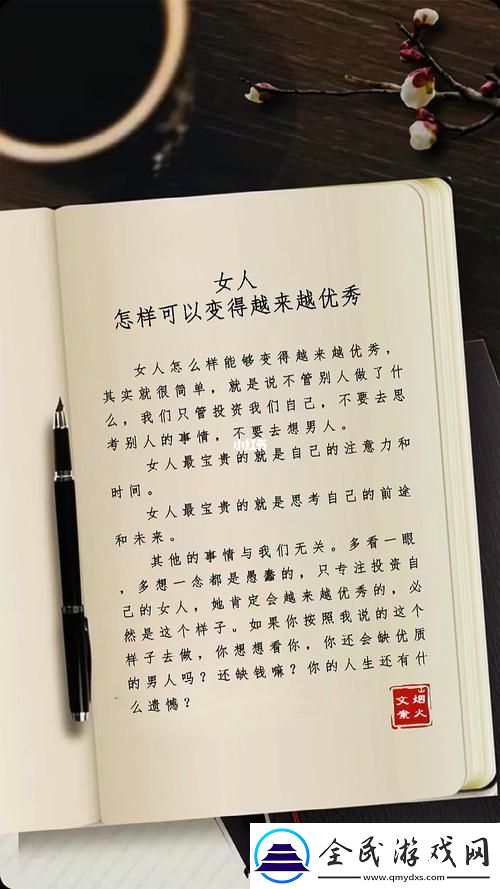 女人
怎样可以变得越来越优秀
女人怎么样能够变得越来越优秀，
其实就很简单，就是说不管别人做了什
么，我们只管投资我们自己，不要去思
考别人的事情，不要去想男人。
小红书
女人最宝贵的就是自己的注意力和
时间。
女人最宝贵的就是思考自己的前途
和未来。
其他的事情与我们无关。多看一眼
，多想一念都是愚蠢的，只专注投资自
己的女人，她肯定会越来越优秀的，必
然是这个样子。如果你按照我说的这个
样子去做，你想想看你，你还会缺优质
的男人吗？还缺钱嘛？你的人生还有什
么遗憾？
山烟火
文案
全民游戏网
www.qmydxs.com